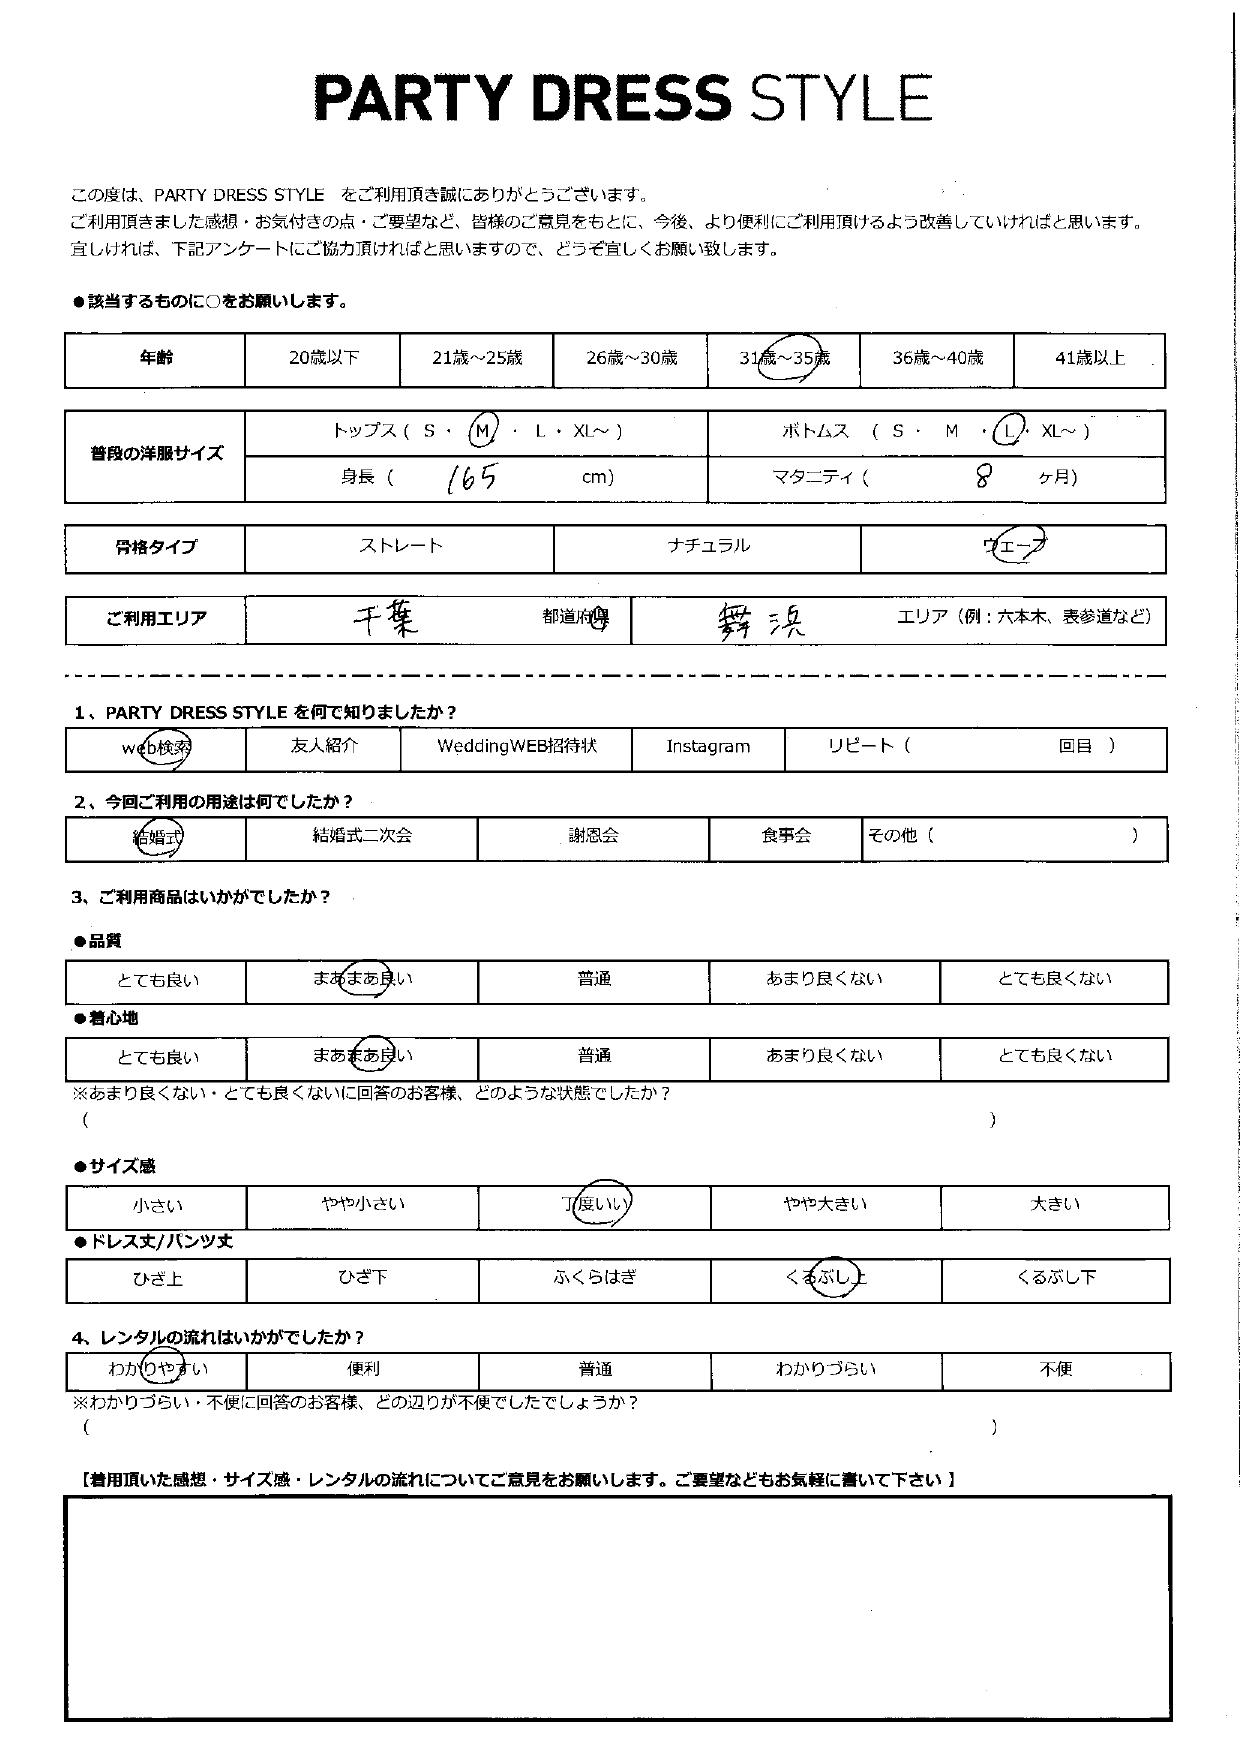 PARTY DRESS STYLE
この度は、PARTY DRESS STYLE をご利用頂き誠にありがとうございます。
ご利用頂きました感想・お気付きの点・ご要望など、皆様のご意見をもとに、今後、より便利にご利用頂けるよう改善していければと思います。
宜しければ、下記アンケートにご協力頂ければと思いますので、どうぞ宜しくお願い致します。
●該当するものに○をお願いします。
年齢 20歳以下 21歳～25歳 26歳～30歳 31歳～35歳 36歳～40歳 41歳以上
普段の洋服サイズ
トップス ( S ・ M ・ L ・ XL～ ) ボトムス ( S ・ M ・ L ・ XL～ )
身長 ( 165 cm) マタニティ ( 8 ヶ月)
骨格タイプ ストレート ナチュラル ウェーブ
ご利用エリア 千葉 都道府県 舞浜 エリア（例：六本木、表参道など）
1、PARTY DRESS STYLE を何で知りましたか？
web検索 友人紹介 WeddingWEB招待状 Instagram リピート ( 回目 )
2、今回ご利用の用途は何でしたか？
結婚式 結婚式二次会 謝恩会 食事会 その他 ( )
3、ご利用商品はいかがでしたか？
●品質
とても良い まあまあ良い 普通 あまり良くない とても良くない
●着心地
とても良い まあまあ良い 普通 あまり良くない とても良くない
※あまり良くない・とても良くないに回答のお客様、どのような状態でしたか？
( )
●サイズ感
小さい やや小さい 丁度いい やや大きい 大きい
●ドレス丈/パンツ丈
ひざ上 ひざ下 ふくらはぎ くるぶし上 くるぶし下
4、レンタルの流れはいかがでしたか？
わかりやすい 便利 普通 わかりづらい 不便
※わかりづらい・不便に回答のお客様、どの辺りが不便でしたでしょうか？
( )
【着用頂いた感想・サイズ感・レンタルの流れについてご意見をお願いします。ご要望などもお気軽に書いて下さい 】